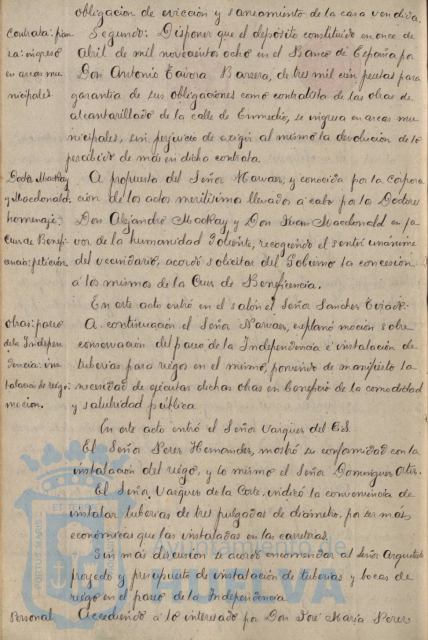 obligacion de evicción y saneamiento de la casa vendida.
Contrata: fian
za: ingreso
en arcas mu
nicipales.
Segundo: Disponer que el depósito constituido en once de
Abril de mil novecientos ocho en el Banco de España por
Don Antonio Tavira Barrera, de tres mil cien pesetas para
garantia de sus obligaciones como contratista de las obras de
alcantarillado de la calle de Enmedio, se ingrese en arcas mu
nicipales, sin perjuicio de exigir al mismo la devolución de lo
percibido de más en dicha contrata.
Doctor MacKay
y Macdonald:
homenaje:
Cruz de Benefi
cencia: petición.
A propuesta del Señor Narvaez, y conocida por la Corpora
ción de los actos meritísimos llevados a cabo por los Doctores
Don Alejandro MacKay y Don Juan Macdonald en fa
vor de la humanidad doliente, recogiendo el sentir unánime
del vecindario, acordó solicitar del Gobierno la concesión
a los mismos de la Cruz de Beneficencia.
En este acto entró en el salón el Señor Sanchez
Obras: paseo
de la Indepen
dencia: ins
talación de riego:
moción.
A continuación el Señor Narvaez, explanó moción sobre
conservación del paseo de la Independencia é instalación de
tuberias para riegos en el mismo, poniendo de manifiesto la
necesidad de ejecutar dichas obras en beneficio de la comodidad
y salubridad pública
En este acto entró el Señor Vazquez del Cid.
El Señor Perez Hernandez, mostró su conformidad con la
instalación del riego, y lo mismo el Señor Dominguez Ortiz.
El Señor Vazquez de la Corte, indicó la conveniencia de
instalar tuberias de tres pulgadas de diámetro, por ser más
económicas que las instaladas en las carreteras.
Sin más discusion se acordó encomendar al Señor Arquitecto
proyecto y presupuesto de instalación de tuberias y bocas de
riego en el paseo de la Independencia.
Personal
Accediendo á lo interesado por Don José Maria Perez
Ayuntamiento de
HUELVA